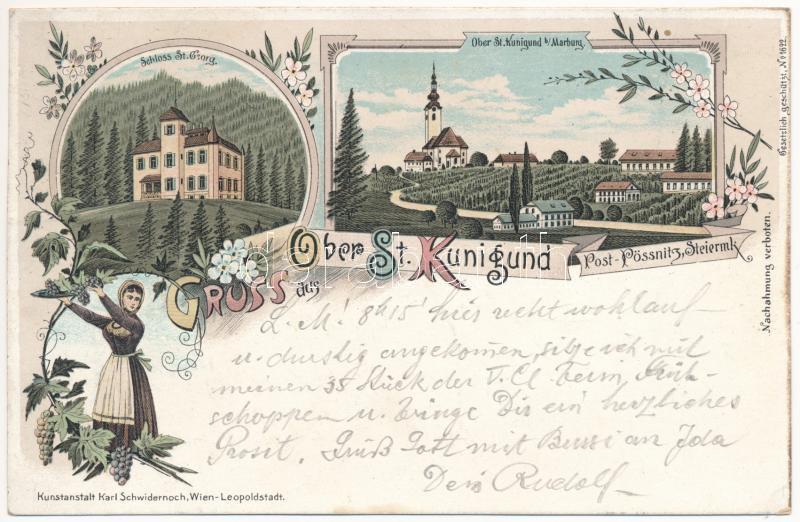 Schloss St. Georg.
Ober St. Kunigund b/Marburg.
Gesetzlich geschützt, No 1622.
Gruss aus Ober St. Kunigund
Post-Pössnitz, Steiermk.
Nachahmung verboten.
L. M! 8h15' hier recht wohlauf
u. durstig angekommen, sitze ich mit
meinen 35 Stück der V. Cl. beim Früh-
schoppen u. bringe Dir ein herzliches
Prosit. Grüß Gott mit Bussi an Ida
Dein Rudolf
Kunstanstalt Karl Schwidernoch, Wien-Leopoldstadt.